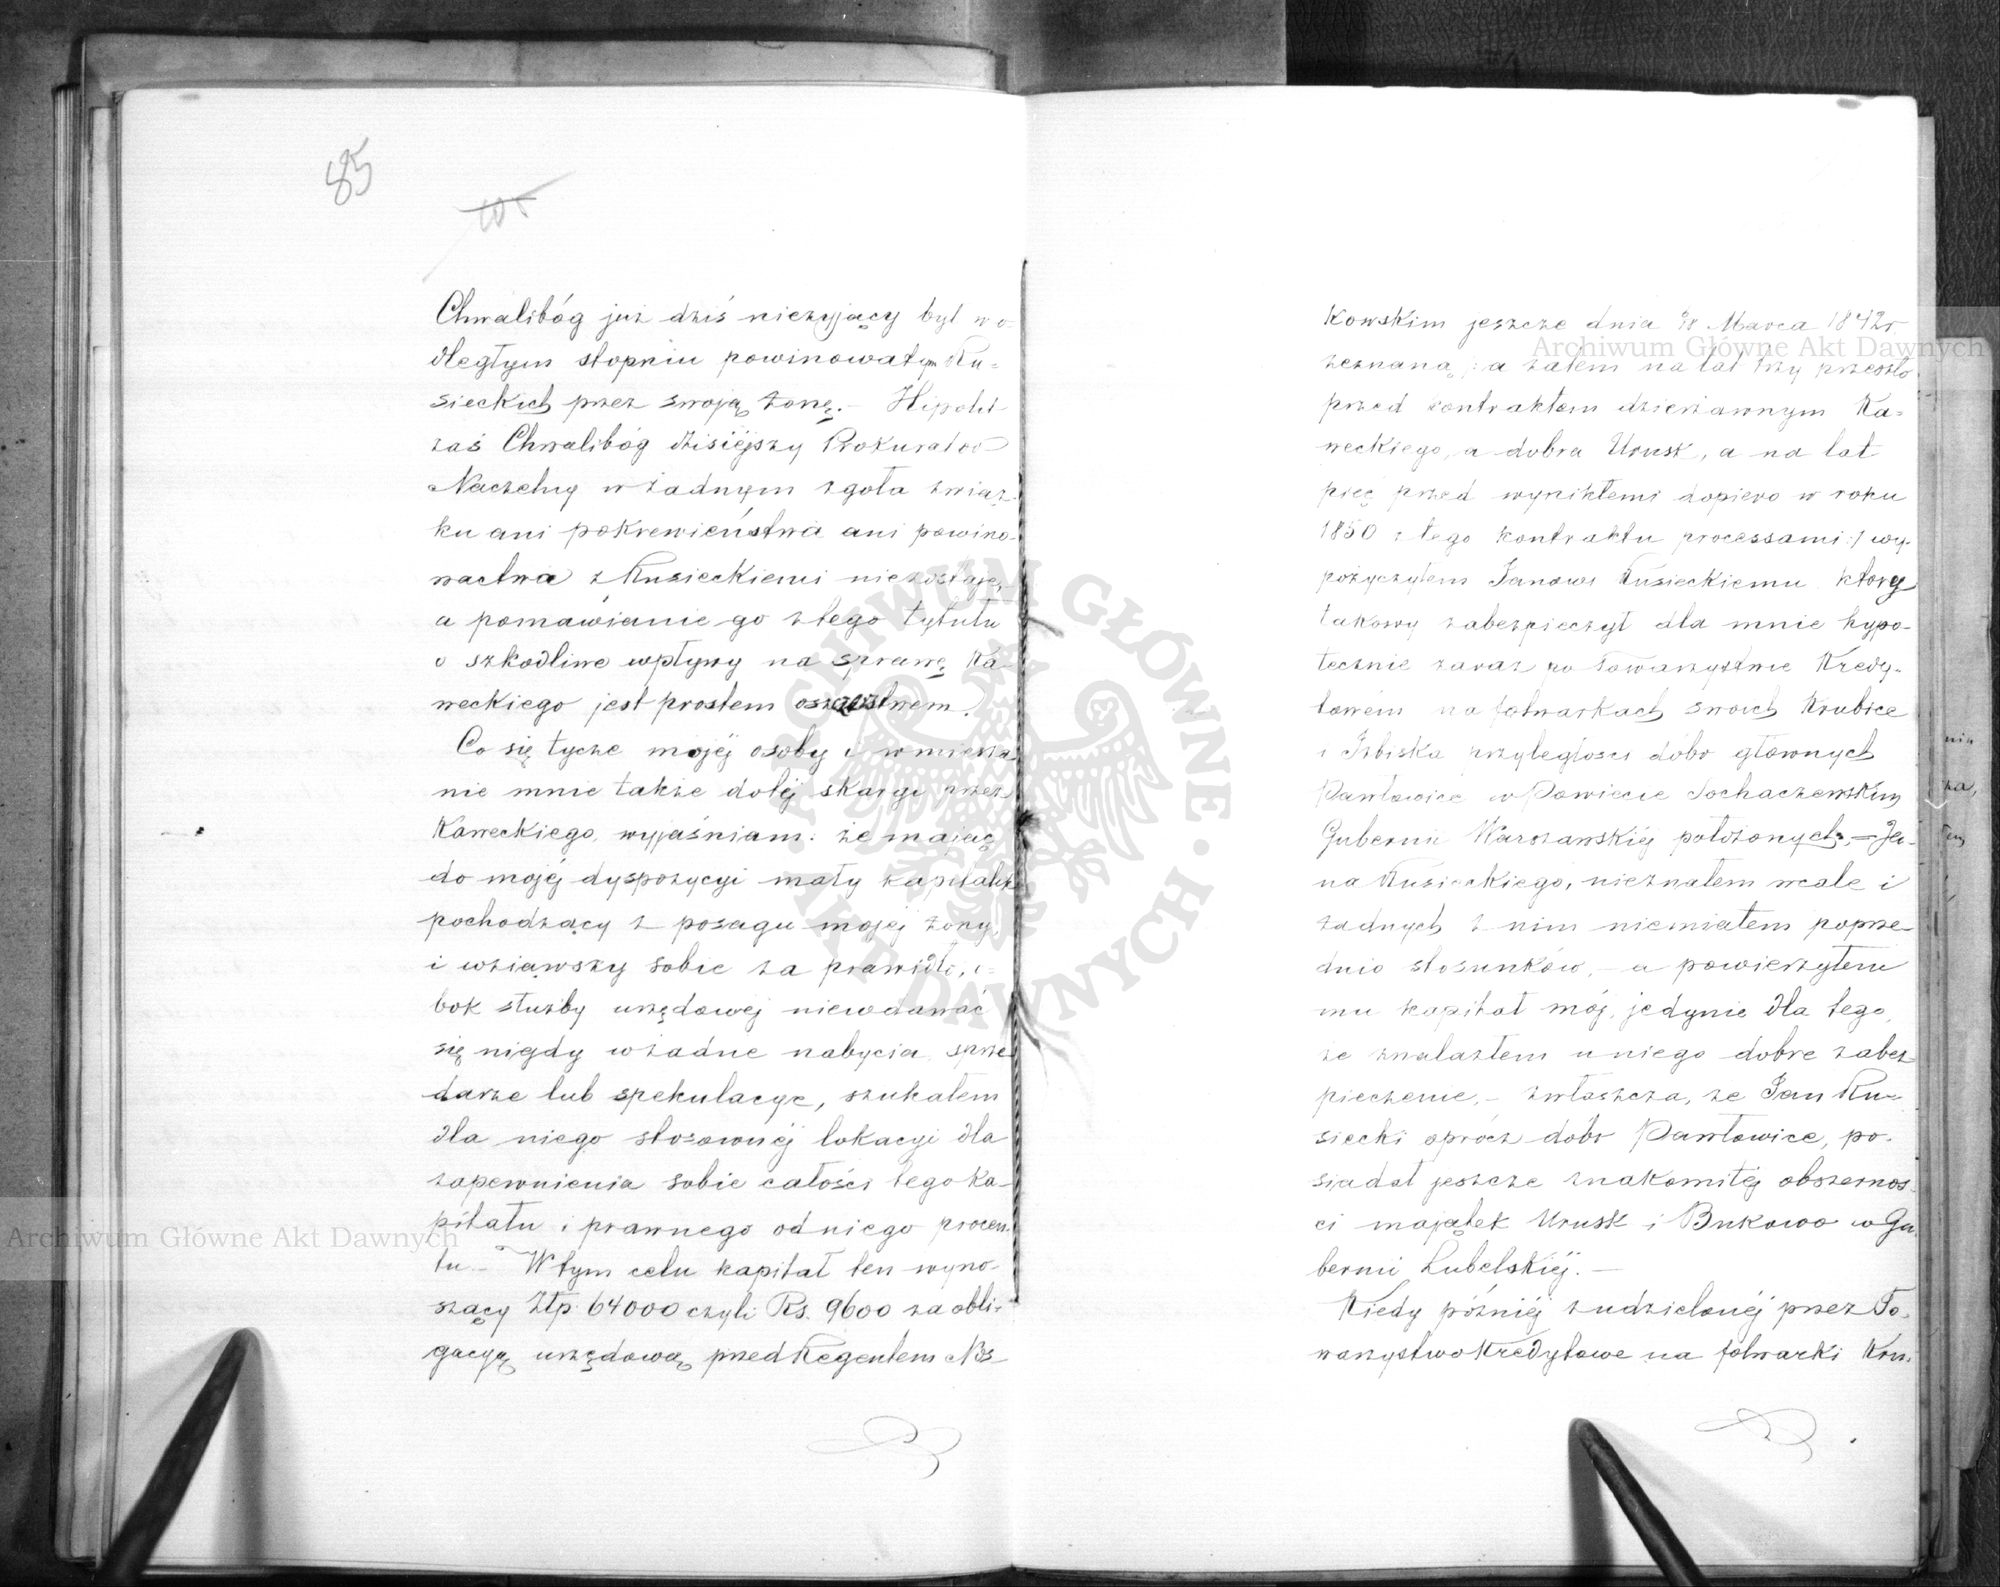 85
Chwalibóg już dziś nieżyjący był w o-
dległym stopniu powinowatym Ku-
sieckich przez swoją żonę. – Hipolit
zaś Chwalibóg dzisiéjszy Prokurator
Naczelny w żadnym zgoła związ-
ku ani pokrewieństwa ani powino-
wactwa z Kusieckiemi niezostaje,
a pomawianie go z tego tytułu
o szkodliwe wpływy na sprawę Ka-
weckiego jest prostem oszczerstwem.
Co się tycze mojéj osoby i w miesza-
nie mnie także do téj skargi przez
Kaweckiego, wyjaśniam: że mając
do mojéj dyspozycyi mały kapitalik
pochodzący z posagu mojéj żony,
i wziąwszy sobie za prawidło, o-
bok służby urzędowéj niewdawać
się nigdy w żadne nabycia, sprze-
darze lub spekulacye, szukałem
dla niego stosownéj lokacyi dla
zapewnienia sobie całości tego ka-
pitału i prawnego od niego procen-
tu. – W tym celu kapitał ten wyno-
szący Złp. 64000 czyli Rs. 9600 za obli-
gacyą urzędową przed Regentem
kowskim jeszcze dnia Marca 1842 r.
zeznaną /: a zatem na lat trzy przeszło
przed kontraktem dzierżawnym Ka-
weckiego, a dobra Urusk, a na lat
pięć przed wynikłemi dopiero w roku
1850 z tego kontraktu processami :/ wy-
pożyczyłem Janowi Kusieckiemu który
takowy zabezpieczył dla mnie hypo-
tecznie zaraz po Towarzystwie Kredy-
towém na folwarkach swoich Krubice
i Izbiska przyległości dóbr głównych
Pawłowice w Powiecie Sochaczewskim
Gubernii Warszawskiéj położonych. – Ja-
na Kusieckiego, nieznałem wcale i
żadnych z nim niemiałem poprze-
dnio stosunków, – a powierzyłem
mu kapitał mój, jedynie dla tego,
że znalazłem u niego dobre zabez-
pieczenie, – zwłaszcza, że Jan Ku-
siecki oprócz dóbr Pawłowice, po-
siadał jeszcze znakomitéj obszernoś-
ci majątek Urusk i Bukowo w Gu-
bernii Lubelskiéj. –
Kiedy późniéj z udzielonéj przez To-
warzystwo Kredytowe na folwarki Kru-
Archiwum Główne Akt Dawnych
Archiwum Główne Akt Dawnych
ARCHIWUM GŁÓWNE · AKT DAWNYCH ·